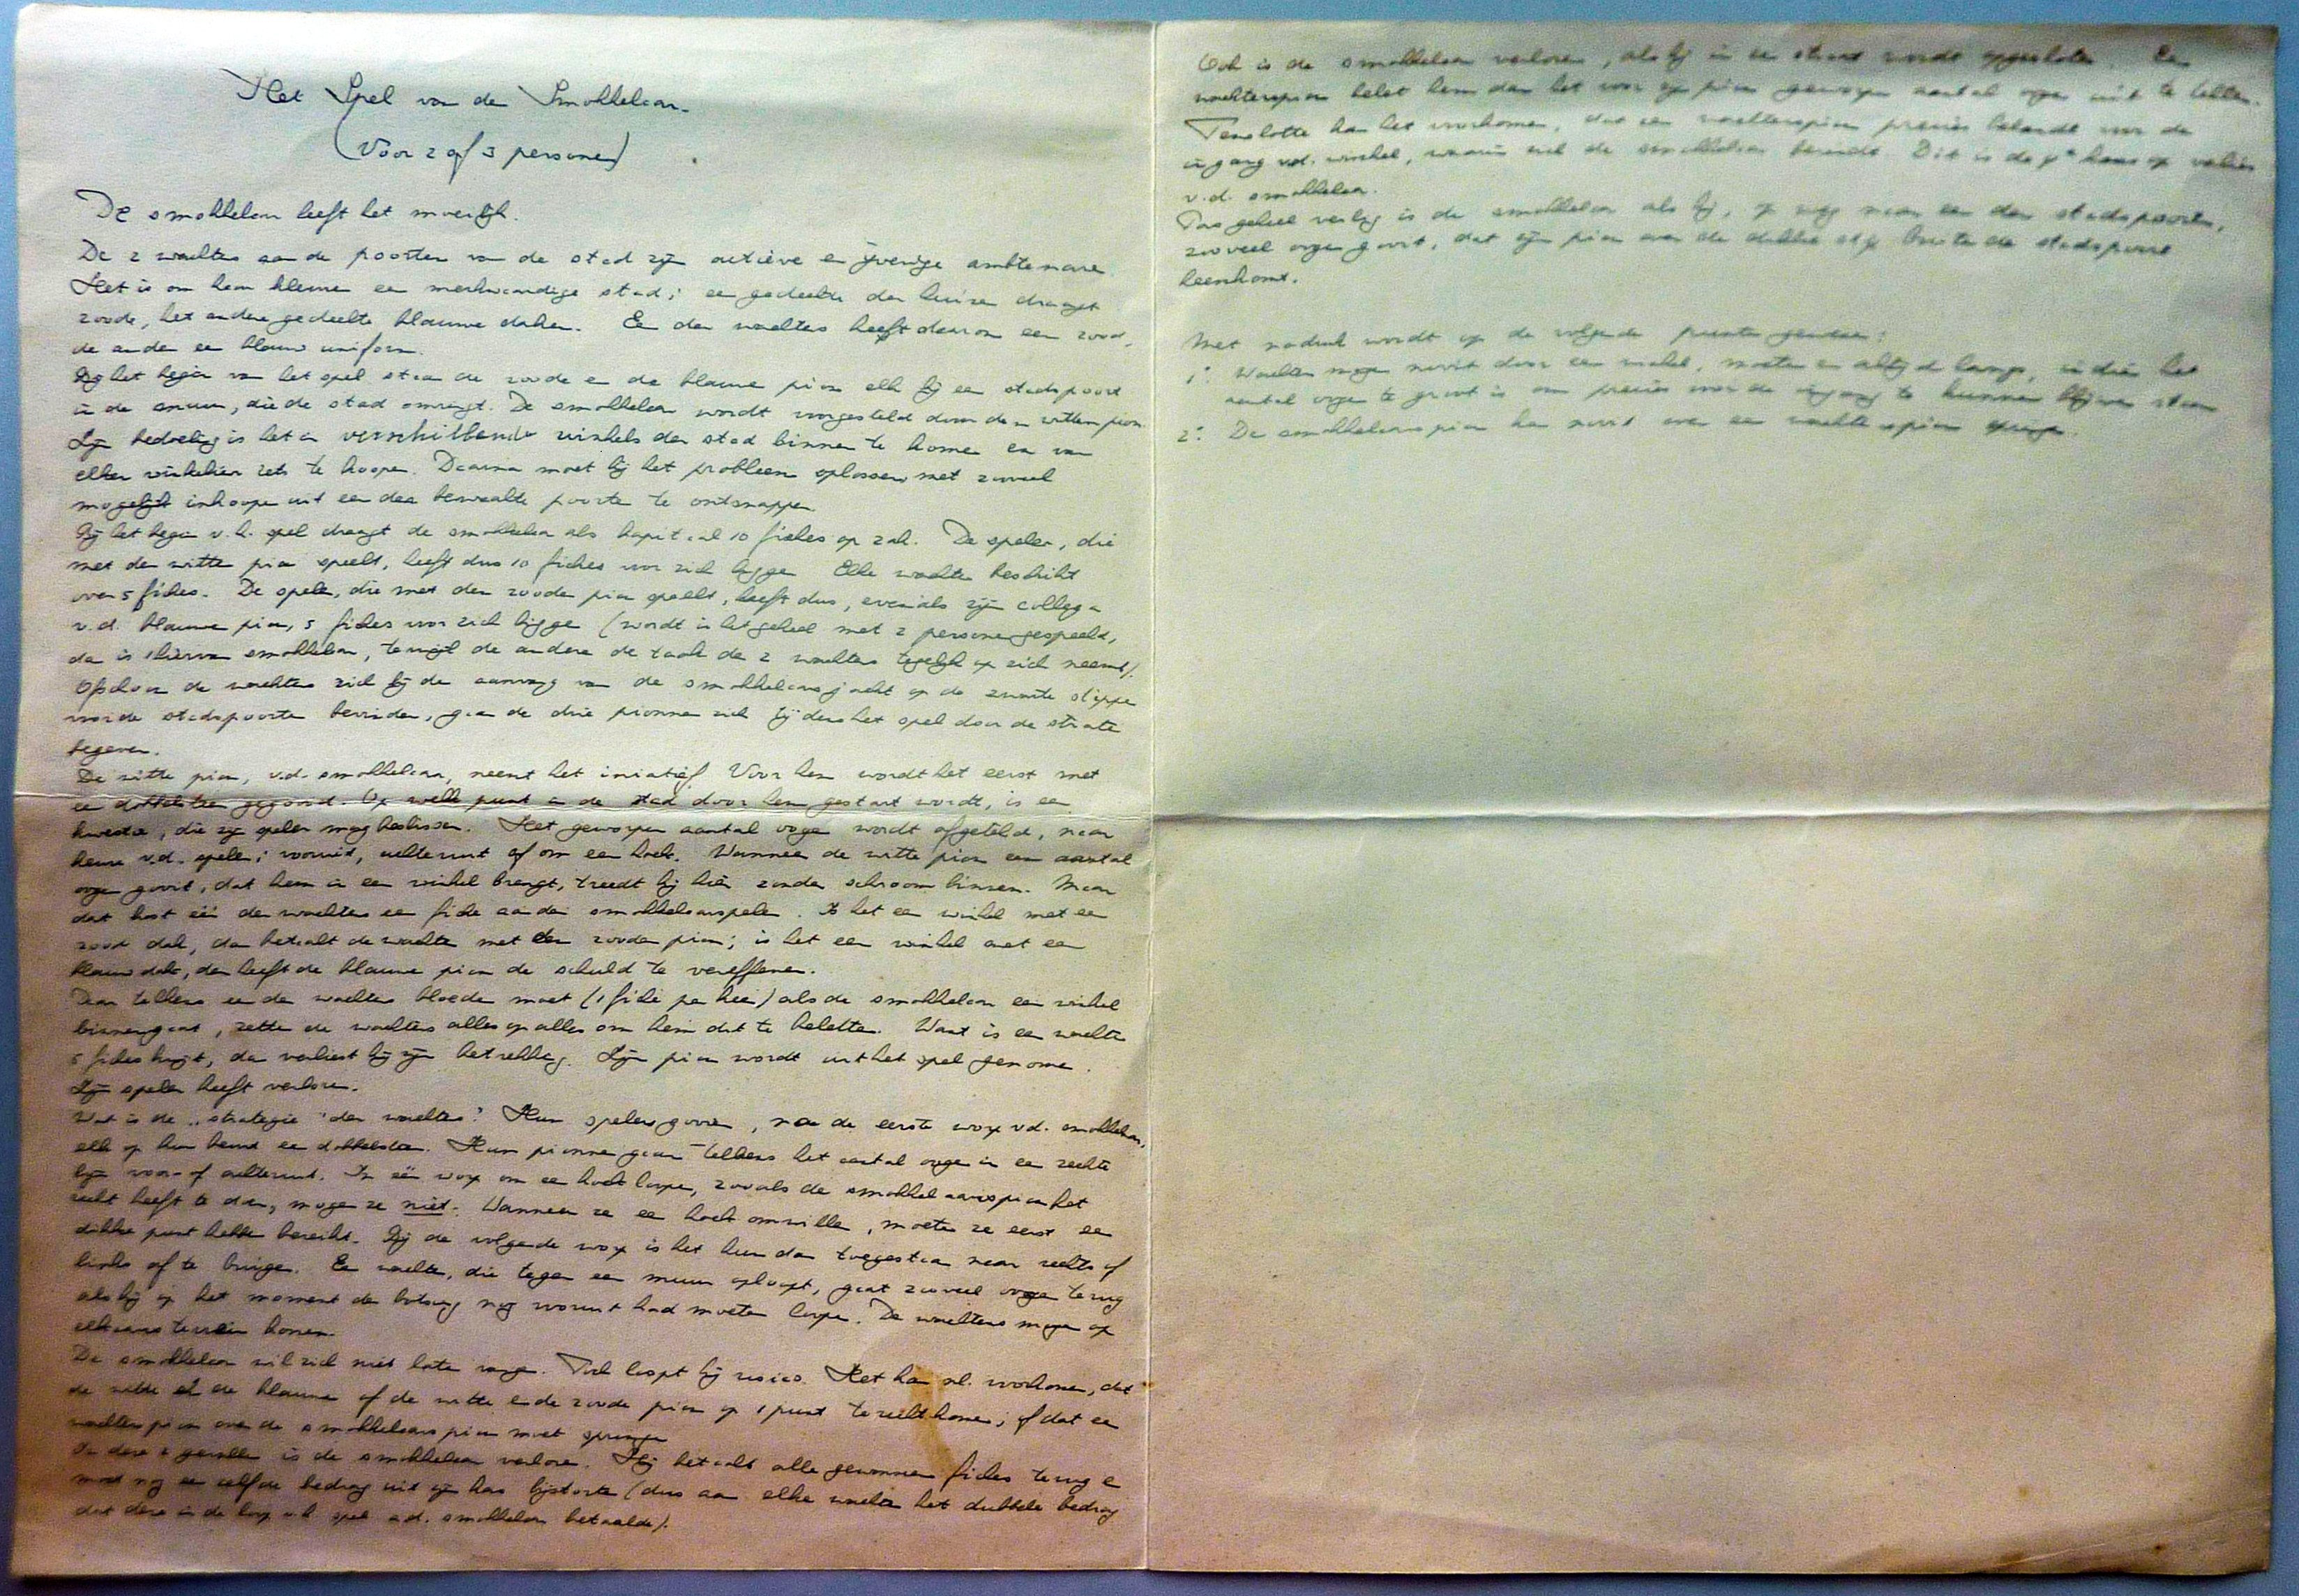 Het Spel van den Smokkelaar.
(Voor 2 of 3 personen)
De smokkelaar heeft het moeilijk.
De 2 wachters aan de poorten van de stad zijn actieve en ijverige ambtenaren.
Het is om hen kleine een merkwaardige stad; een gedeelte der huizen draagt
roode, het andere gedeelte blauwe daken. Een der wachters heeft daarom een rood,
de ander een blauw uniform.
Bij het begin van het spel staan de roode en de blauwe pion elk bij een stadspoort
in de muur, die de stad omringt. De smokkelaar wordt voorgesteld door den witten pion.
Zijn bedoeling is het in verschillende winkels der stad binnen te komen en van
elken winkelier iets te koopen. Daarna moet hij het probleem oplossen met zooveel
mogelijk inkoopen uit een der bewaakte poorten te ontsnappen.
Bij het begin v.h. spel draagt de smokkelaar als kapitaal 10 fiches op zak. De speler, die
met den witten pion speelt, heeft dus 10 fiches voor zich liggen. Elke wachter beschikt
over 5 fiches. De speler, die met den rooden pion speelt, heeft dus, evenals zijn collega
v.d. blauwe pion, 5 fiches voor zich liggen (wordt in het geheel met 2 personen gespeeld,
dan is 1 hiervan smokkelaar, terwijl de andere de taak der 2 wachters tegelijk op zich neemt).
Ofschoon de wachters zich bij de aanvang van de smokkelaarsjacht op de zwarte stippen
voor de stadspoorten bevinden, gaan de drie pionnen zich tijdens het spel door de straten
begeven.
De witte pion, v.d. smokkelaar, neemt het iniatief. Voor hem wordt het eerst met
een dobbelsteen gegooid. Op welk punt in de stad door hem gestart wordt, is een
kwestie, die zijn speler mag beslissen. Het geworpen aantal oogen wordt afgeteld, naar
keuze v.d. speler; vooruit, achteruit of om een hoek. Wanneer de witte pion een aantal
oogen gooit, dat hem in een winkel brengt, treedt hij hier zonder schroom binnen. Maar
dat kost één der wachters een fiche aan den smokkelaarspeler. Is het een winkel met een
rood dak, dan betaalt de wachter met den rooden pion; is het een winkel met een
blauw dak, dan heeft de blauwe pion de schuld te vereffenen.
Daar telkens een der wachters bloeden moet (1 fiche per keer) als de smokkelaar een winkel
binnengaat, zetten de wachters alles op alles om hem dat te beletten. Want is een wachter
5 fiches kwijt, dan verliest hij zijn betrekking. Zijn pion wordt uit het spel genomen.
Zijn speler heeft verloren.
Wat is de „strategie" der wachters? Hun spelers gooien, na de eerste worp v.d. smokkelaar,
elk op hun beurt een dobbelsteen. Hun pionnen gaan telkens het aantal oogen in een rechte
lijn voor- of achteruit. In één worp om een hoek loopen, zooals de smokkelaarspion het
recht heeft te doen, mogen ze niet. Wanneer ze een hoek om willen, moeten ze eerst een
dikke punt hebben bereikt. Bij de volgende worp is het hun dan toegestaan naar rechts of
links af te buigen. Een wachter, die tegen een muur oploopt, gaat zooveel oogen terug
als hij op het moment der botsing nog vooruit had moeten loopen. De wachters mogen op
elkaars terrein komen.
De smokkelaar wil zich niet laten vangen. Toch loopt hij risico. Het kan nl. voorkomen, dat
de witte en de blauwe of de witte en de roode pion op 1 punt terecht komen; of dat een
wachterspion over de smokkelaarspion moet springen.
In deze gevallen is de smokkelaar verloren. Hij betaalt alle gewonnen fiches terug en
moet nog een zelfde bedrag uit zijn kas bijstorten (dus aan elke wachter het dubbele bedrag
dat deze in de loop v.h. spel a.d. smokkelaar betaalde).
Ook is de smokkelaar verloren, als hij in een straat wordt opgesloten. Een
wachterspion belet hem dan het voor zijn pion geworpen aantal oogen uit te tellen.
Tenslotte kan het voorkomen, dat een wachterspion precies belandt voor de
ingang v.d. winkel, waarin zich de smokkelaar bevindt. Dit is de kans op verlies
v.d. smokkelaar.
Pas geheel veilig is de smokkelaar als hij, op weg naar een der stadspoorten,
zooveel oogen gooit, dat zijn pion over de dikke stip buiten de stadspoort
heenkomt.
Met nadruk wordt op de volgende punten gewezen:
1°. Wachters mogen nooit door een winkel, moeten er altijd langs, indien het
aantal oogen te groot is om precies voor de ingang te kunnen blijven staan
2°. De smokkelaarspion kan nooit over een wachterspion springen.